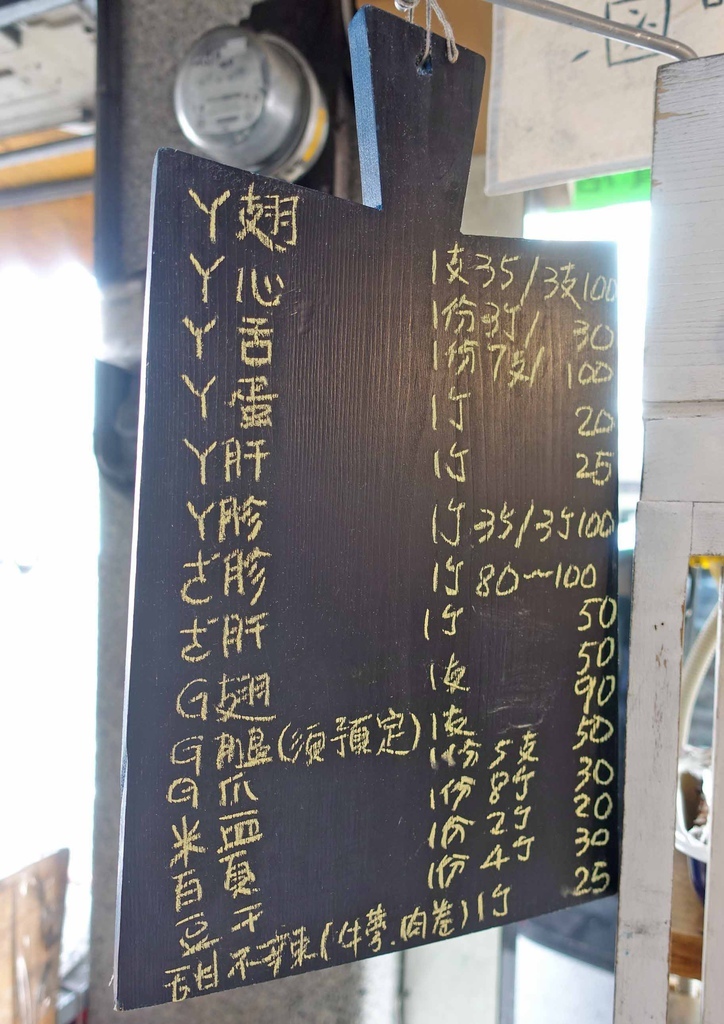 ㄚ翅 1支35/3支100
ㄚ心 1份3ケ/30
ㄚ舌 1份7支/100
ㄚ蛋 1ケ 20
ㄚ肝 1ケ 25
ㄚ胗 1ケ35/3ケ100
ㄜˊ胗 1ケ80~100
ㄜˊ肝 1ケ 50
G翅 1支 50
G腿(須預定) 1支 90
G爪 1份 5支 50
米血 1份 8ケ 30
百頁 1份 2ケ 20
豆干 1份 4ケ 30
甜不辣(牛蒡.肉卷)1ケ 25